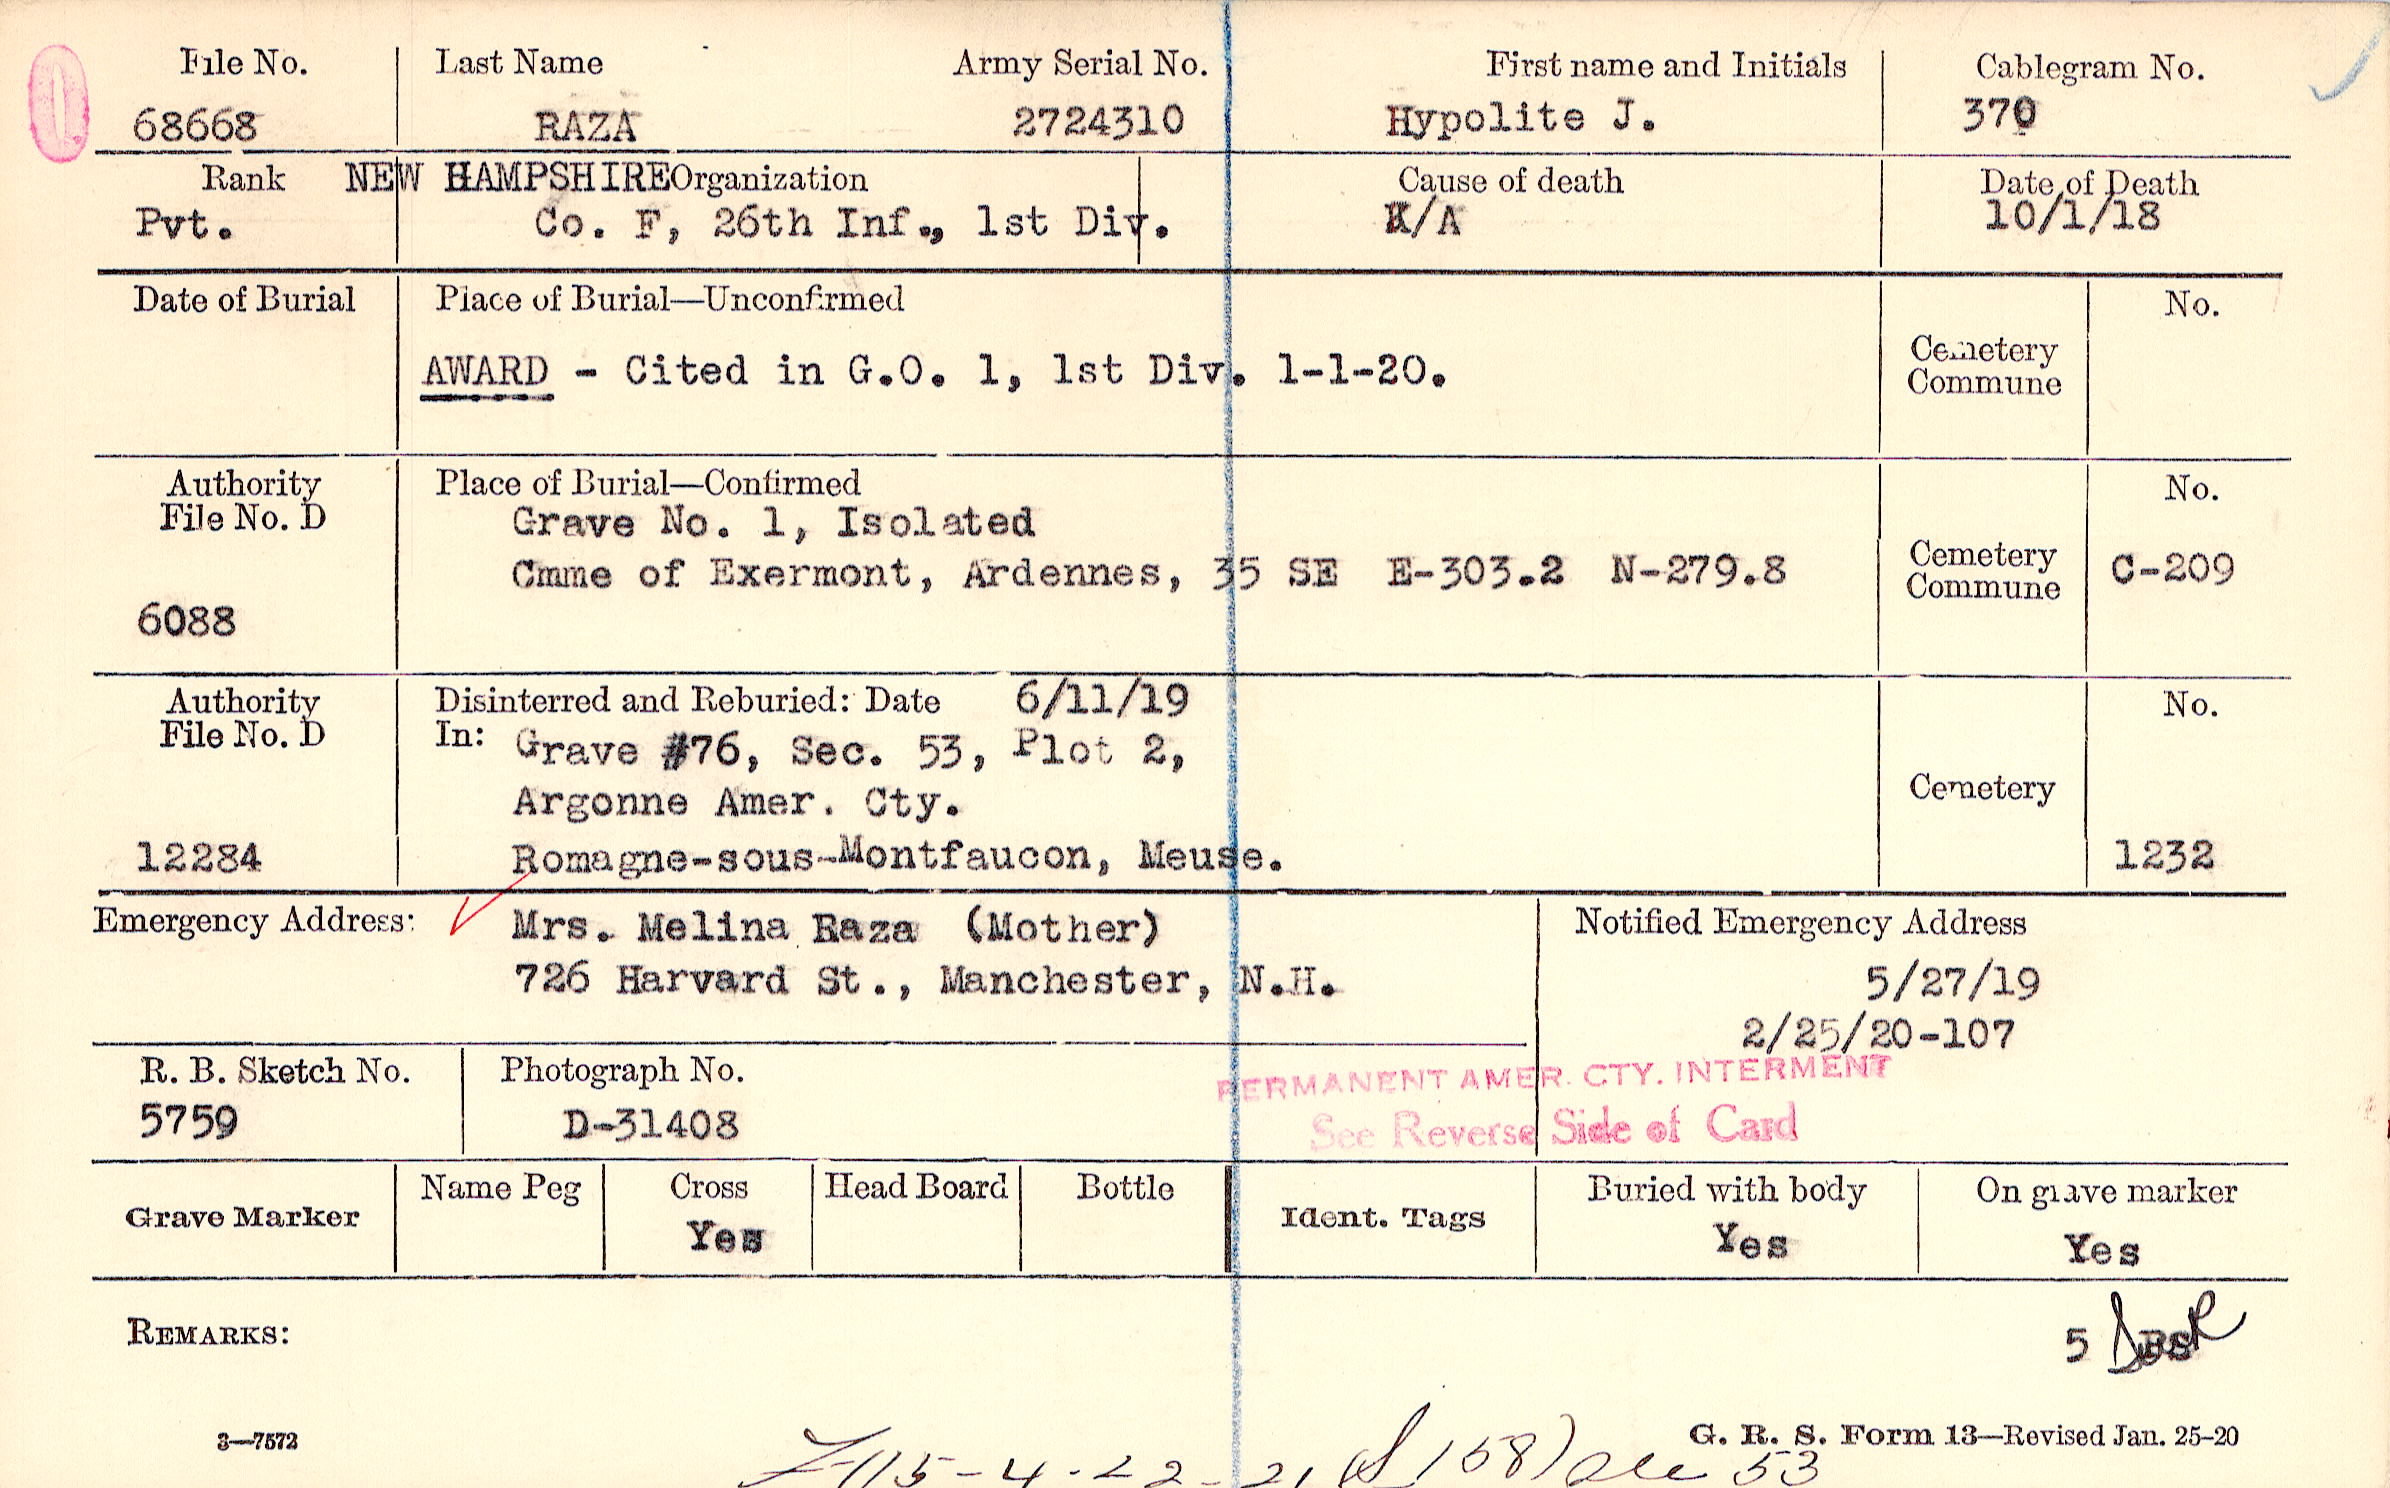 File No. Last Name Army Serial No. First name and Initials Cablegram No.
68668 RAZA 2724310 Hypolite J. 370
Rank NEW HAMPSHIRE Organization Cause of death Date of Death
Pvt. Co. F, 26th Inf., 1st Div. K/A 10/1/18
Date of Burial Place of Burial—Unconfirmed No.
AWARD - Cited in G.O. 1, 1st Div. 1-1-20. Cemetery
Commune
Authority Place of Burial—Confirmed No.
File No. D Grave No. 1, Isolated
Cmme of Exermont, Ardennes, 35 SE E-303.2 N-279.8 Cemetery C-209
Commune
6088
Authority Disinterred and Reburied: Date 6/11/19 No.
File No. D In: Grave #76, Sec. 53, Plot 2,
Argonne Amer. Cty. Cemetery
12284 Romagne-sous-Montfaucon, Meuse. 1232
Emergency Address: Mrs. Melina Raza (Mother) Notified Emergency Address
726 Harvard St., Manchester, N.H. 5/27/19
2/25/20-107
R. B. Sketch No. Photograph No. PERMANENT AMER. CTY. INTERMENT
5759 D-31408 See Reverse Side of Card
Grave Marker Name Peg Cross Head Board Bottle Ident. Tags Buried with body On grave marker
Yes Yes Yes
REMARKS: 5
3—7572 G. R. S. Form 13—Revised Jan. 25-20
115-4-22-21 158) 53